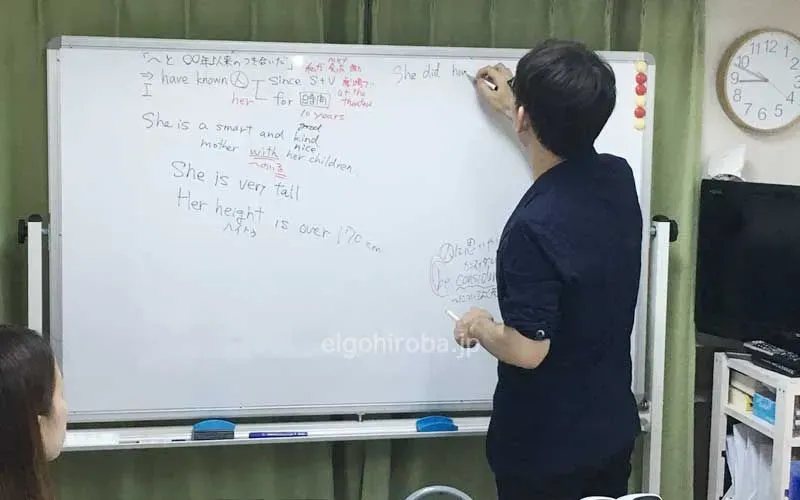 「〜と 〇〇年以来のつき合いだ」
⇒ have known 人 since S+V
I her for 時間 at the theater
10 years
She is a smart and good kind nice
mother with her children.
She is very tall
Her height is over 170 cm
ヘイト
She did
be consid
eigohiroba.jp
12 1 2 3 4 5 6 7 8 9 10 11